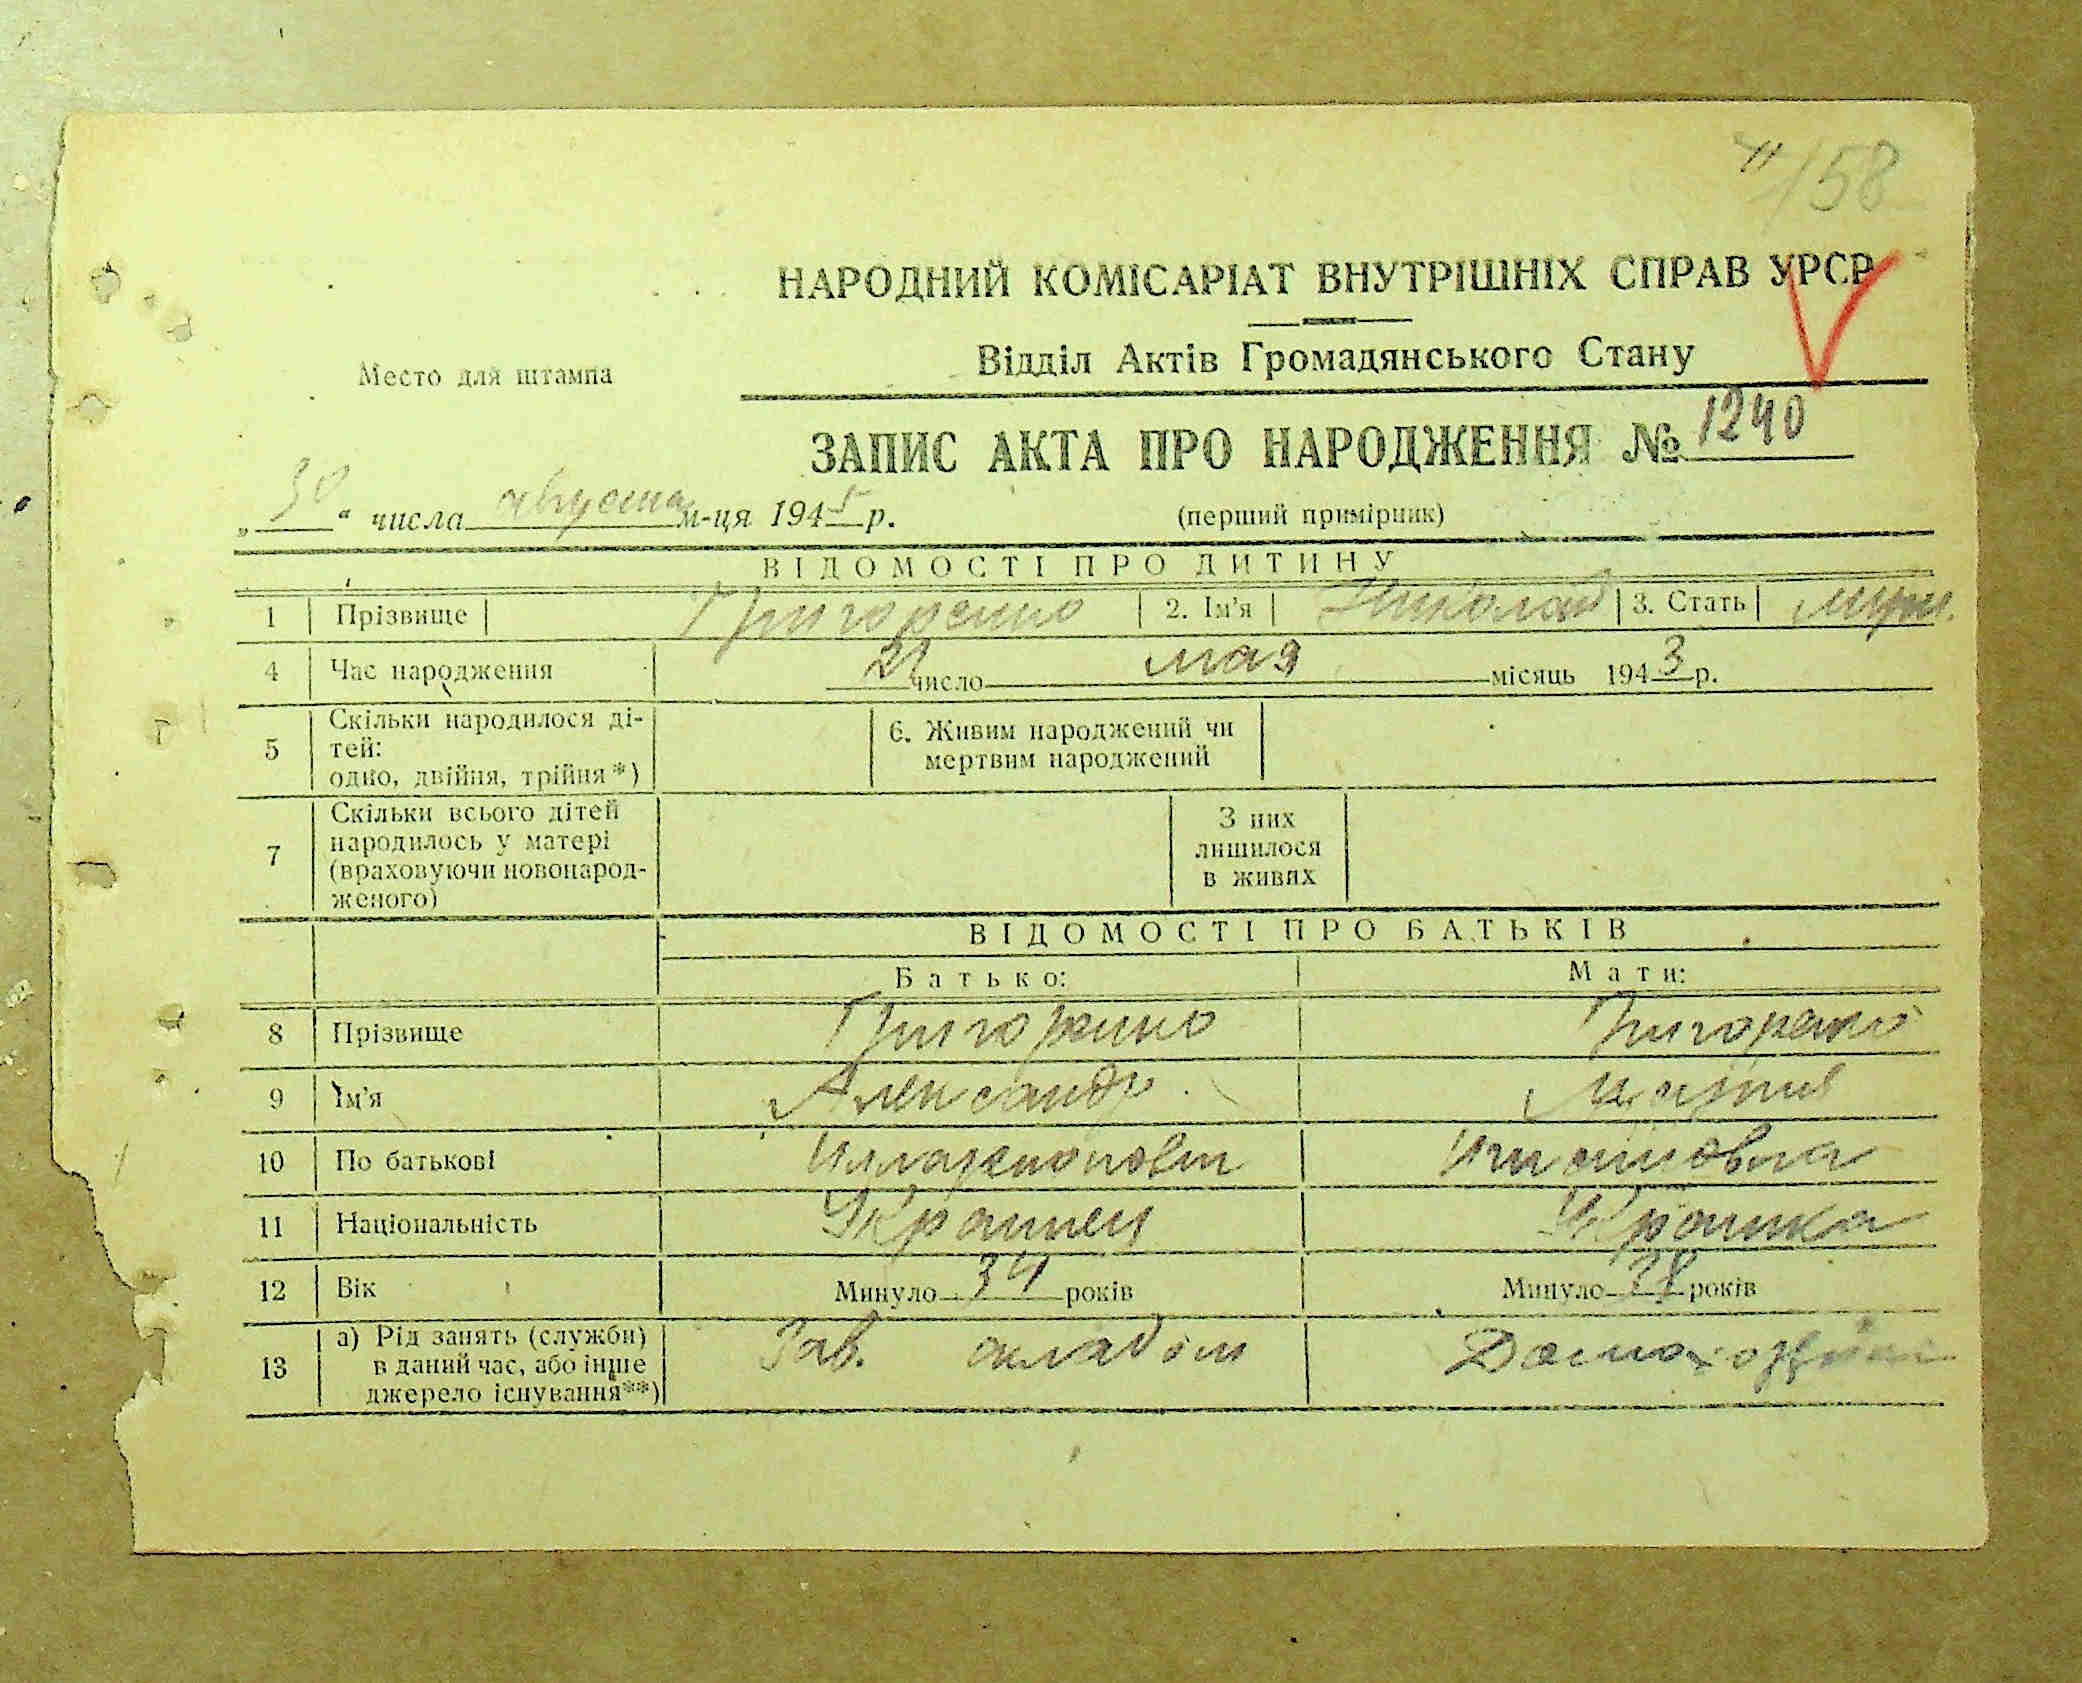 /58
НАРОДНИЙ КОМІСАРІАТ ВНУТРІШНІХ СПРАВ УРСР
Место для штампа
Відділ Актів Громадянського Стану
ЗАПИС АКТА ПРО НАРОДЖЕННЯ № 1240
„30“ числа августа м-ця 1945 р. (перший примірник)
ВІДОМОСТІ ПРО ДИТИНУ
1 Прізвище Григоренко 2. Ім'я Николай 3. Стать муж.
4 Час народження 21 число мая місяць 1943 р.
5 Скільки народилося ді-
тей:
одно, двійня, трійня*)
6. Живим народжений чи
мертвим народжений
7 Скільки всього дітей
народилось у матері
(враховуючи новонарод-
женого)
З них
лишилося
в живих
ВІДОМОСТІ ПРО БАТЬКІВ
Батько: Мати:
8 Прізвище Григоренко Григоренко
9 Ім'я Александр Мария
10 По батькові
11 Національність Украинец Украинка
12 Вік Минуло 34 років Минуло 38 років
13 а) Рід занять (служби)
в даний час, або інше
джерело існування**)
Зав. складом Домохозяйка